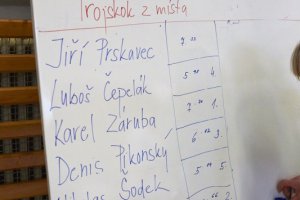 Trojskok z místa
Jiří Prskavec 7
Luboš Čepelák 5 4.
Karel Záruba 7 1.
Denis Pikonský 6 3.
Šodek 5 5.
2.